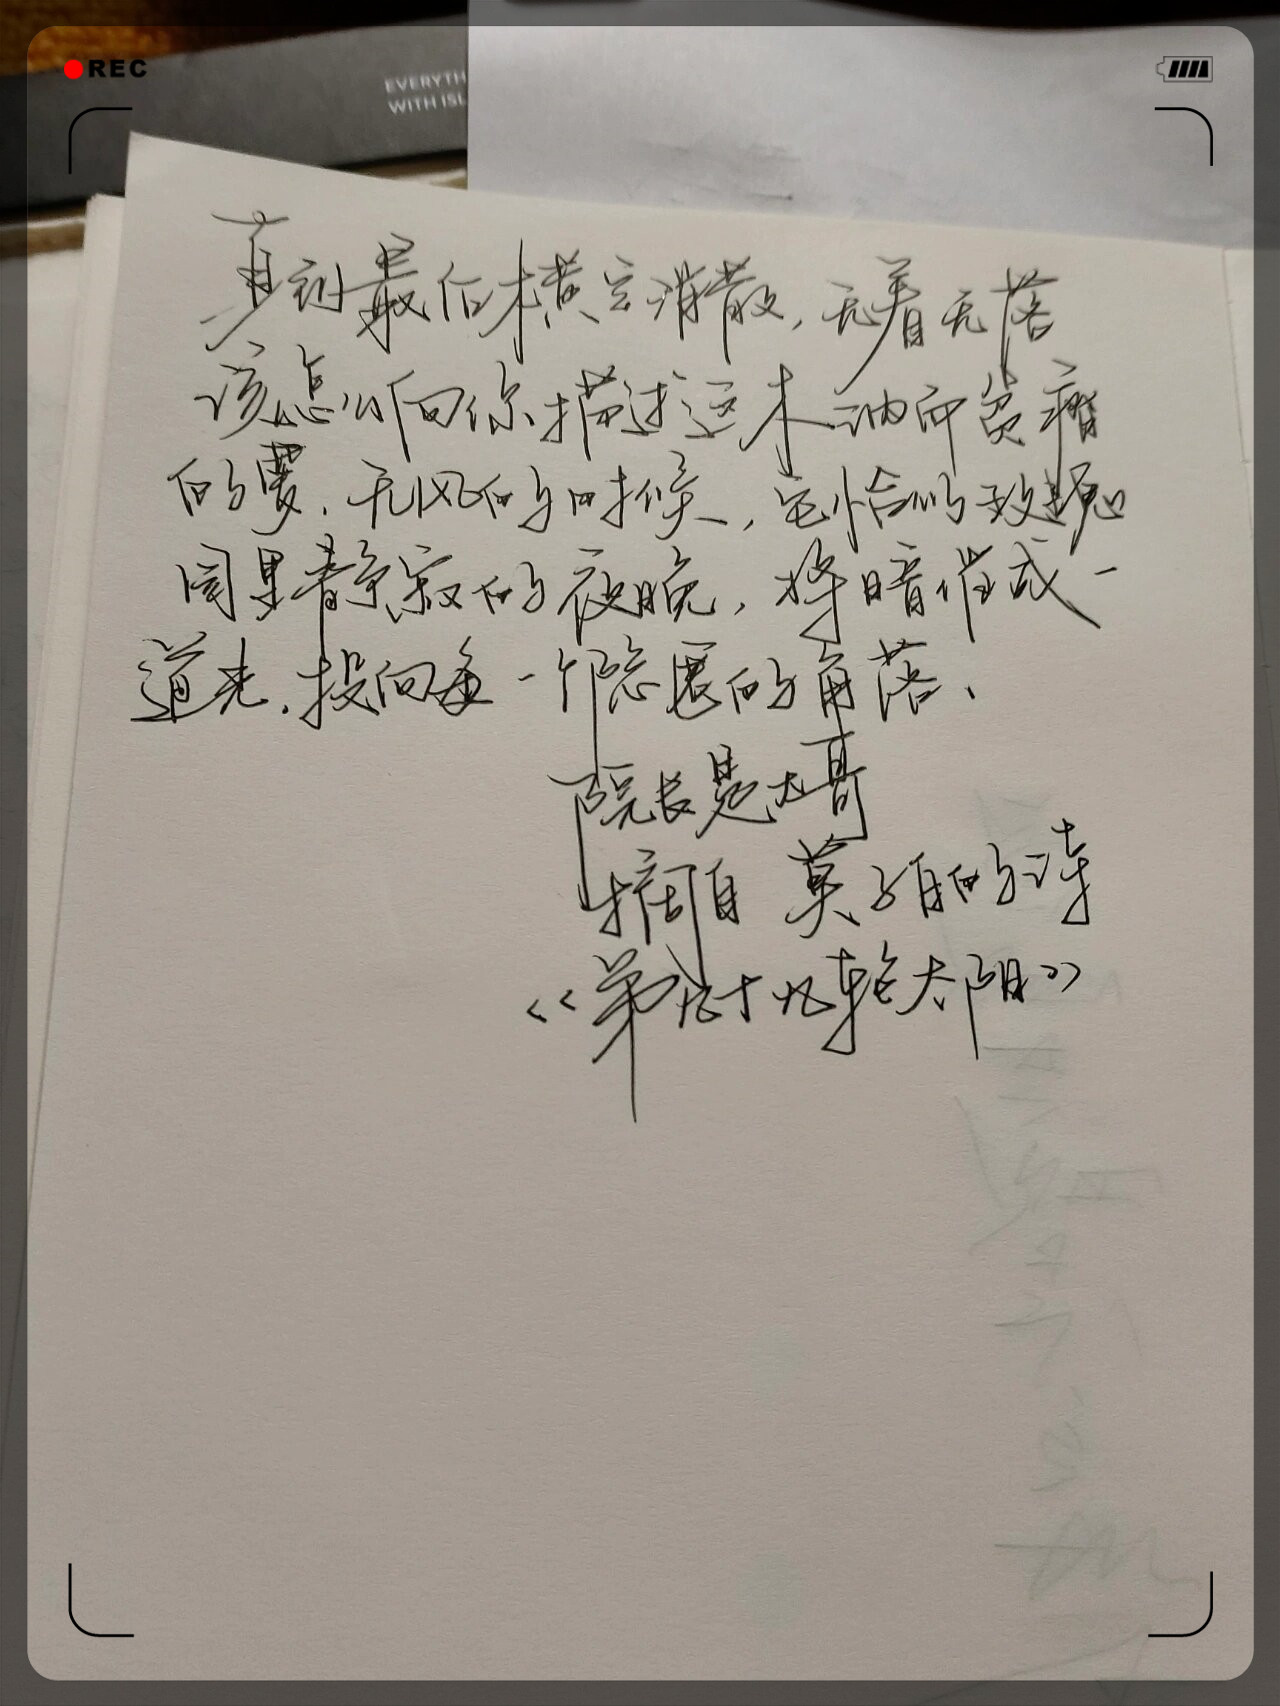 REC
EVERYTH
WITH ISL
直到最后横空消散，无着无落
该怎么向你描述这木讷而贫瘠
的梦，无风的时候，它恰的
同黑静寂的夜晚，将暗催成一
道光，投向每一个隐匿的角落、
院长是大哥
摘自 莫子的诗
《第九十九轮太阳》